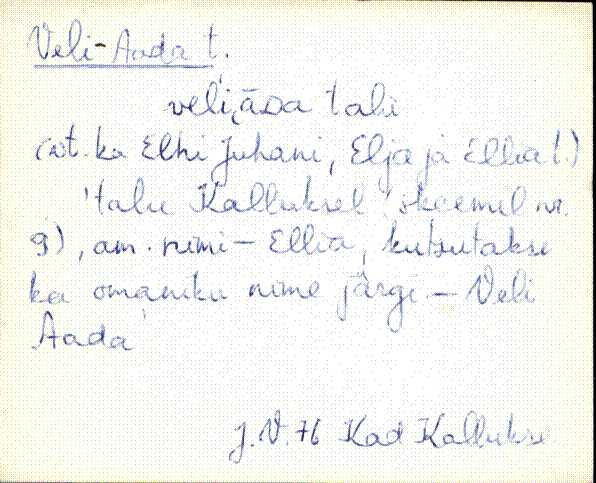 Veli-Aada t.
veli,āda talu
(vt. ka Elhi Juhani, Elja ja Ellia t.)
'talu Kalluksel (skeemil nr.
9), am. nimi – Ellia, kutsutakse
ka omaniku nime järgi – Veli
Aada'
J. V. 76 Kad Kallukse